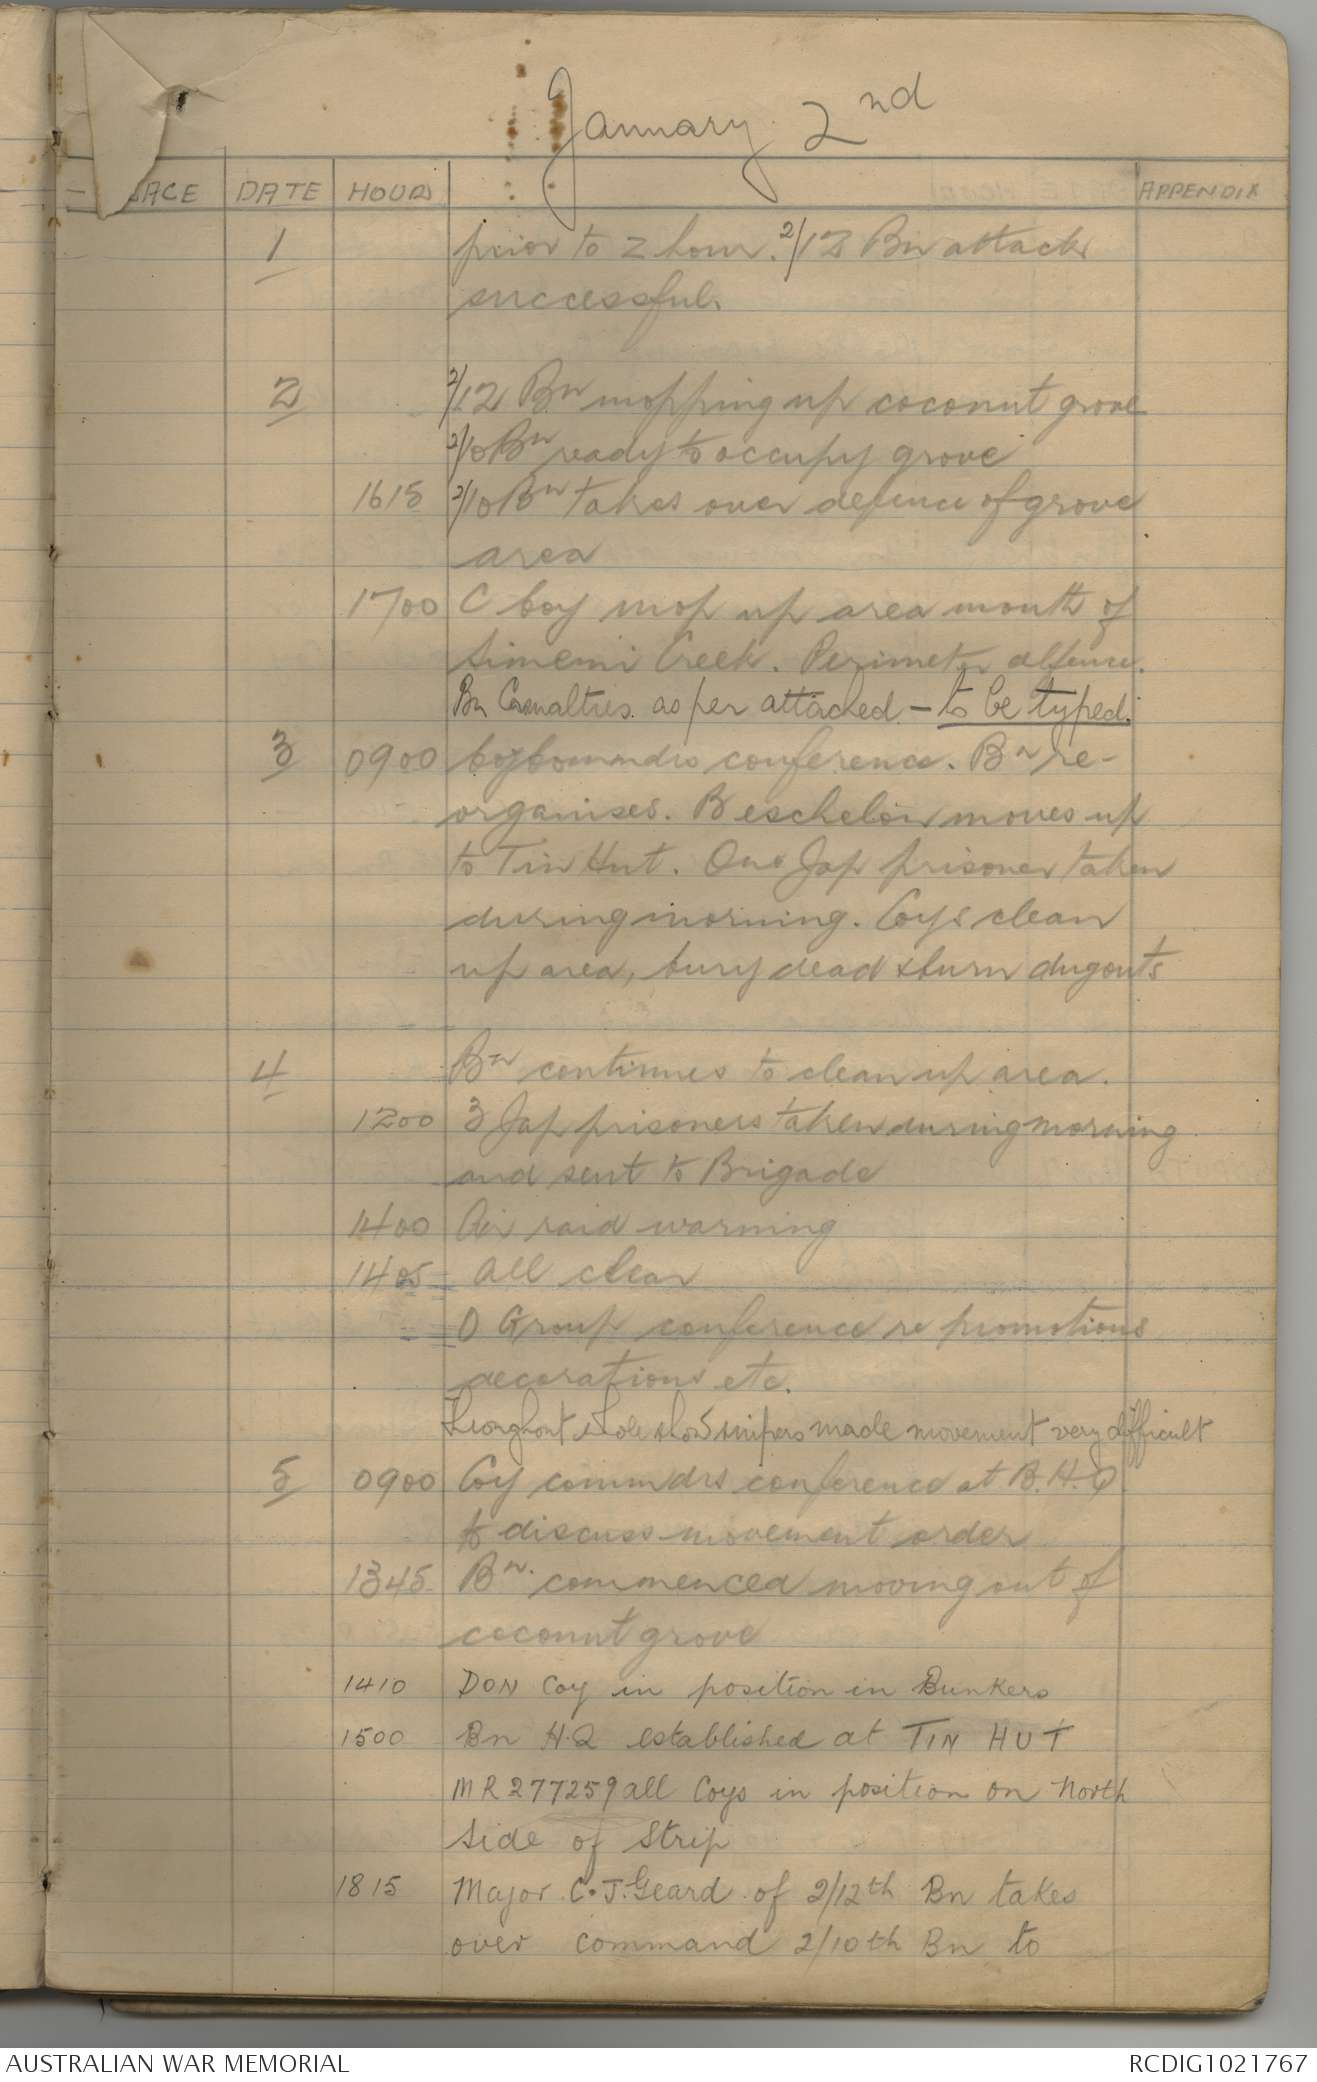 January 2nd
PLACE DATE HOUR APPENDIX
1 prior to Z hour. 2/12 Bn attack
successful.
2 2/12 Bn mopping up coconut grove
2/10 Bn ready to occupy grove
1615 2/10 Bn takes over defence of grove
area
1700 C Coy mop up area mouth of
Simemi Creek. Perimeter defence.
Bn Casualties as per attached - to be typed.
3 0900 Coy Commdrs conference. Bn re-
organises. B eschelon moves up
to Tin Hut. One Jap prisoner taken
during morning. Coys clean
up area, bury dead & burn dugouts
4 Bn continues to clean up area.
1200 3 Jap prisoners taken during morning
and sent to Brigade
1400 Air raid warning
1405 All clear
O Group conference re promotions
decorations etc.
made movement very difficult
5 0900 Coy commdrs conference at B.H.Q.
to discuss movement order
1345 Bn. commenced moving out of
coconut grove
1410 DON Coy in position in Bunkers
1500 Bn H.Q established at TIN HUT
MR 277259 all Coys in position on North
side of Strip
1815 Major C.J. Geard of 2/12th Bn takes
over command 2/10th Bn to
AUSTRALIAN WAR MEMORIAL RCDIG1021767